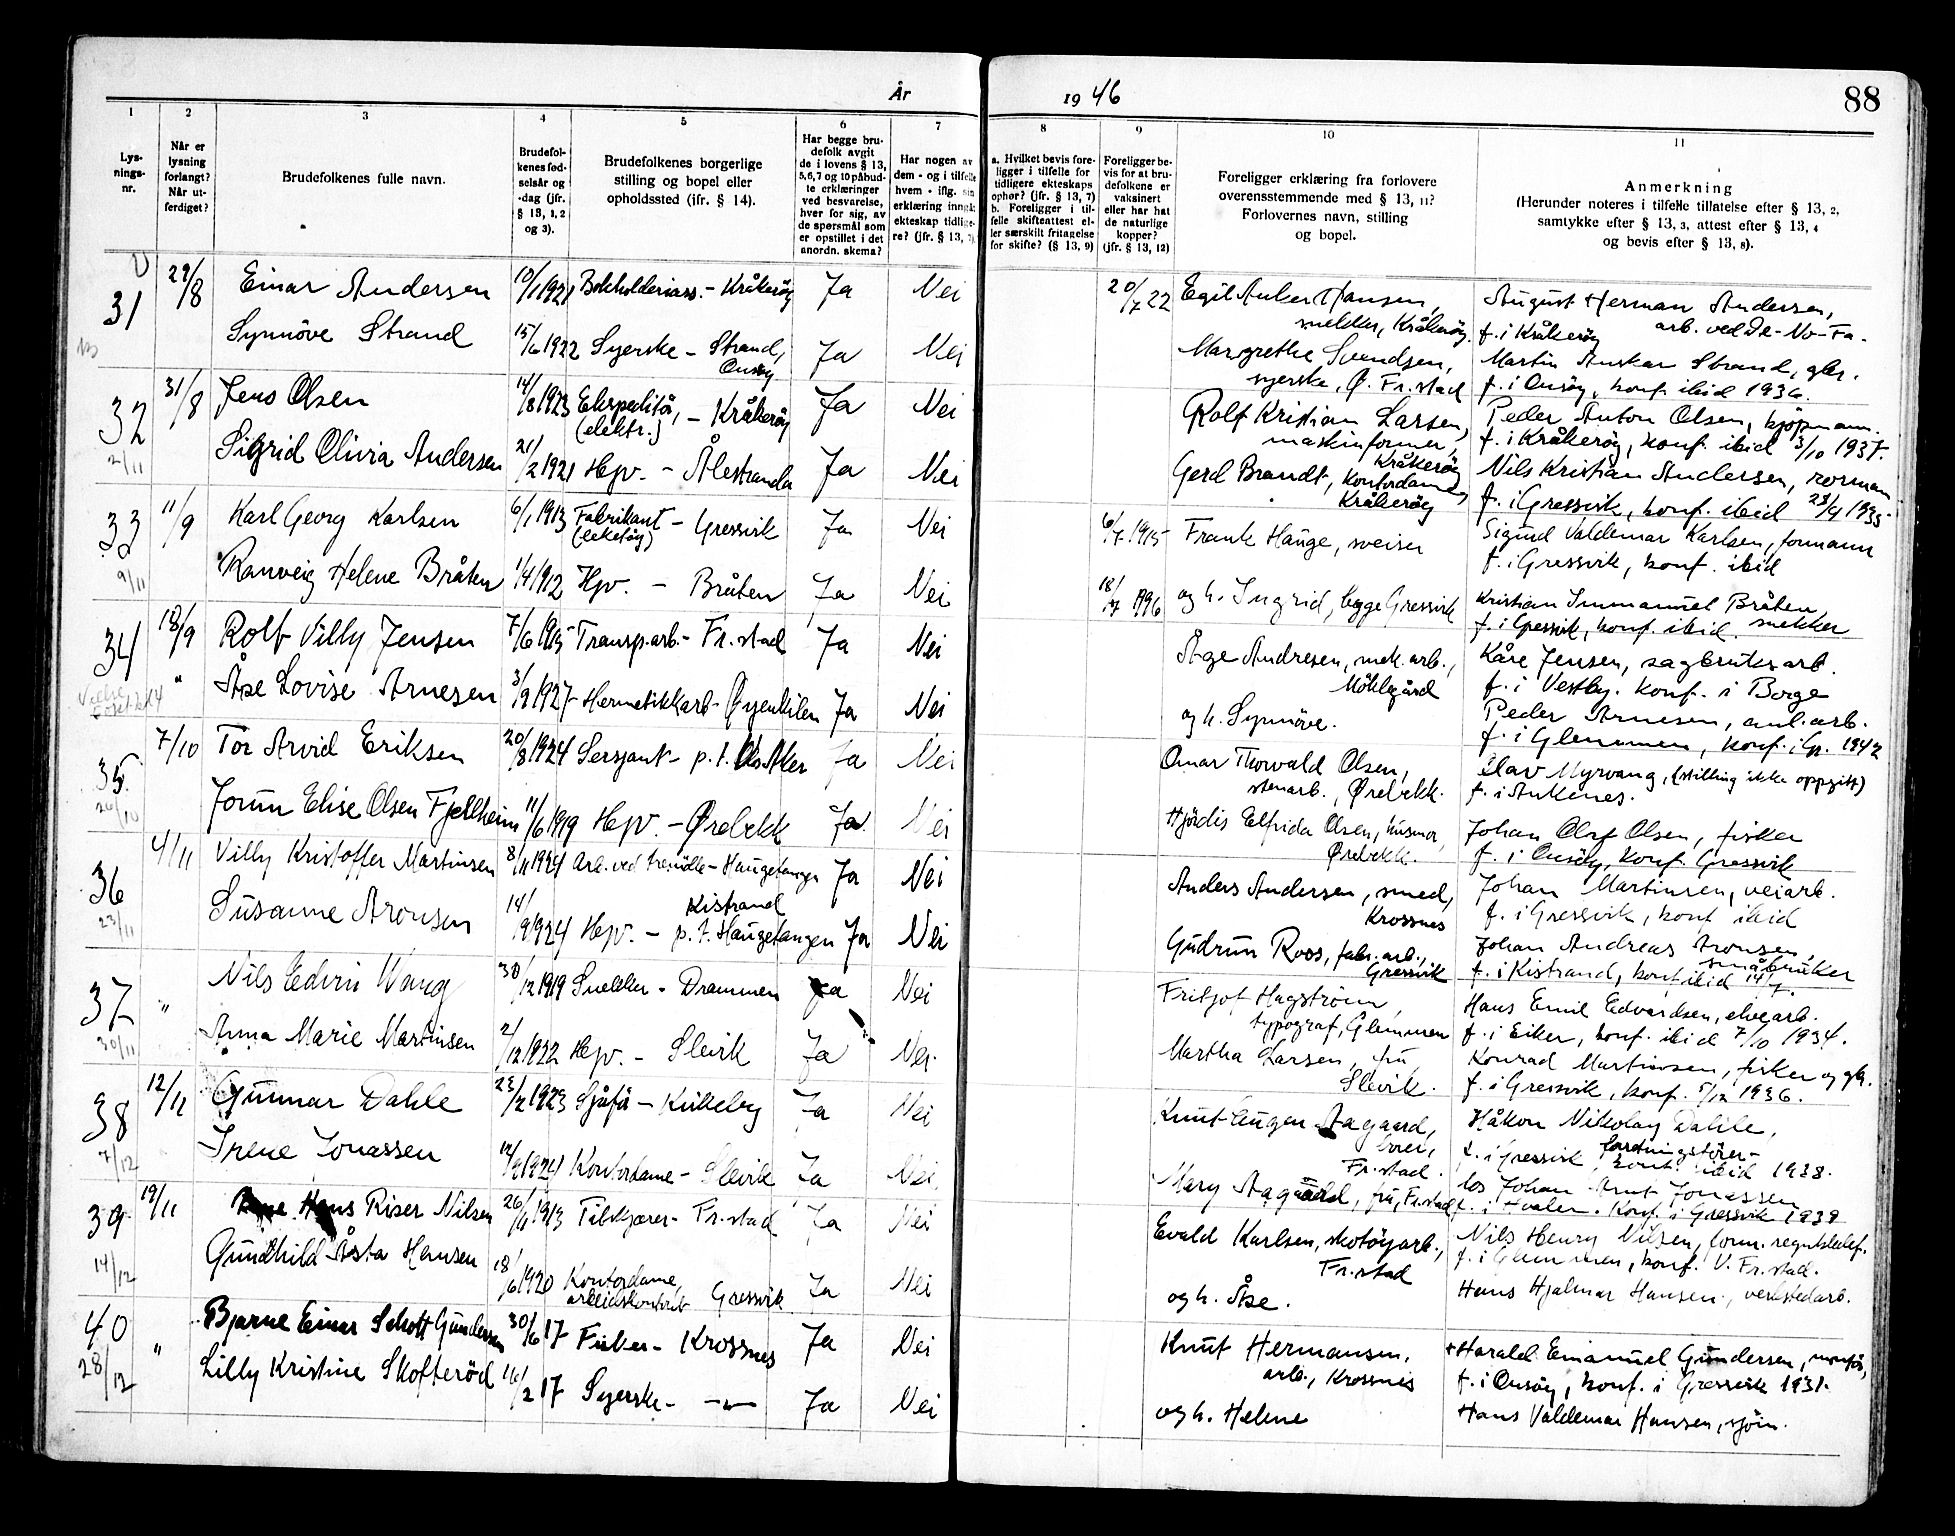 År 1946
88
1 2 3 4 5 6 7 8 9 10 11
Lys-
nings-
nr.
Når er
lysning
forlangt?
Når ut-
ferdiget?
Brudefolkenes fulle navn.
Brudefol-
kenes fød-
selsår og
-dag (jfr.
§ 13, 1, 2
og 3).
Brudefolkenes borgerlige
stilling og bopel eller
opholdssted (jfr. § 14).
Har begge bru-
defolk avgit
de i lovens § 13,
5, 6, 7 og 10 påbud-
te erklæringer
ved besvarelse,
hver for sig, av
de spørsmål som
er opstillet i det
anordn. skema?
Har nogen av
dem - og i tilfelle
hvem - iflg. sin
erklæring inngåt
ekteskap tidlige-
re? (jfr. § 13, 7).
a. Hvilket bevis fore-
ligger i tilfelle for
tidligere ekteskaps
ophør? (jfr. § 13, 7)
b. Foreligger i til-
felle skifteattest el-
ler særskilt fritagelse
for skifte? (§ 13, 9)
Foreligger be-
vis for at bru-
defolkene er
vaksinert
eller har hat
de naturlige
kopper?
(jfr. § 13, 12)
Foreligger erklæring fra forlovere
overensstemmende med § 13, 11?
Forlovernes navn, stilling
og bopel.
Anmerkning
(Herunder noteres i tilfelle tillatelse efter § 13, 2,
samtykke efter § 13, 3, attest efter § 13, 4
og bevis efter § 13, 8).
31 29/8 Einar Andersen 10/1 1921 Bokholderiass. - Kråkerøy Ja Nei 20/7 22 Egil Anker Hansen, snekker, Kråkerøy August Herman Andersen, arb. ved De-No-Fa.
f. i Kråkerøy
Synnöve Strand 15/6 1922 Syerske - Strand, Onsøy Ja Nei Margrethe Svendsen, syerske, Ø. Fr.stad Martin Anskar Strand, gbr.
f. i Onsøy, konf. ibid 1936.
32 31/8 Jens Olsen 14/8 1923 Ekspeditör, (elektr.) - Kråkerøy Ja Nei Rolf Kristian Larsen, maskinformer, Kråkerøy Peder Anton Olsen, kjøpmann.
f. i Kråkerøy, konf. ibid 3/10 1937.
2/11 Sigrid Olivia Andersen 21/2 1921 Hjv. - Ålestranda Ja Nei Gerd Brandt, kontordame, Kråkerøy Nils Kristian Andersen, rorman
f. i Gressvik, konf. ibid 28/4 1935
33 11/9 Karl Georg Karlsen 6/1 1913 Fabrikant (leketøy) - Gressvik Ja Nei 6/7 1915 Frank Hauge, sveiser Sigurd Valdemar Karlsen, formann
f. i Gressvik, konf. ibid
9/11 Ranveig Helene Bråten 1/4 1912 Hjv. - Bråten Ja Nei 18/7 1996 og h. Ingrid, begge Gressvik Kristian Immanuel Bråten, snekker
f. i Gressvik, konf. ibid.
34 18/9 Rolf Villy Jensen 7/6 1915 Transp.arb. - Fr.stad Ja Nei Åge Andresen, mek. arb., Möklegård Kåre Jensen, sagbruksarb.
f. i Vestby. Konf. i Borge
" Åse Lovise Arnesen 3/9 1927 Hermetikkarb - Øyenkilen Ja Nei og h. Synnöve. Peder Arnesen, anl.arb.
f. i Glemmen, konf. i Gr. 1942
35. 7/10 Tor Arvid Eriksen 20/8 1924 Sersjant - p.t. V. Aker Ja Nei Omar Thorvald Olsen, stenarb., Ørebekk. Olav Myrvang, (stilling ikke oppgitt)
f. i Ankenes.
26/10 Jorun Elise Olsen Fjellheim 11/6 1919 Hjv. - Ørebekk Ja Nei Hjördis Elfrida Olsen, husmor, Ørebekk. Johan Olaf Olsen, fisker
f. i Onsöy, konf. Gressvik
36 4/11 Villy Kristoffer Martinsen 8/11 1924 Arb. ved tremölle - Haugetangen Ja Nei Anders Andersen, smed, Krossnes Johan Martinsen, veiarb.
f. i Gressvik, konf ibid
23/11 Susanne Aronsen 14/9 1924 Hjv. - Kistrand p.t. Haugetangen Ja Nei Gudrun Roos, fabr.arb., Gressvik Johan Andreas Aronsen, småbruker
f. i Kistrand, konf ibid 14/7.
37 " Nils Edvin Wang 30/12 1919 Snekker - Drammen Ja Nei Fritjof Hagström, typograf, Glemmen Hans Emil Edvardsen, elvearb.
f. i Eiker, konf. ibid 7/10 1934.
30/11 Anna Marie Martinsen 2/12 1922 Hjv. - Slevik Ja Nei Martha Larsen, fru, Slevik. Konrad Martinsen, fisker og gb.
f. i Gressvik, konf. 5/12 1936.
38 12/11 Gunnar Dahle 23/2 1923 Sjåfør - Kikkeby Ja Nei Knut Eugen Aagaard, Fr.stad. Håkon Nikolay Dahle, forretningsfører
f. i Gressvik konf. ibid 1938.
7/12 Irene Jonassen 1924 Kontordame - Slevik Ja Nei Mary Aagaard, fru, Fr.stad los Johan Arnt Jonassen
f. i Hvaler. Konf. i Gressvik 1939
39 19/11 Hans Riser Nilsen 26/11 1913 Tilskjærer - Fr.stad Ja Nei Evald Karlsen, skotøyarb., Fr.stad Nils Henry Nilsen, form.
f. i Glemmen, konf. V. Fr.stad.
14/12 Gundhild Åsta Hansen 18/6 1920 Kontordame, arbeidskontoret Gressvik Ja Nei og h. Åse. Hans Hjalmar Hansen, verkstedarb.
40 " Bjarne Einar Schott Gundersen 30/6 17 Fisker - Krossnes Ja Nei Knut Hermansen, arb., Krossnes + Harald Emanuel Gundersen,
f. i Onsöy, konf. i Gressvik 1931.
28/12 Lilly Kristine Skofteröd 16/2 17 Syerske - —"— Ja Nei og h. Helene Hans Valdemar Hansen, sjöm.